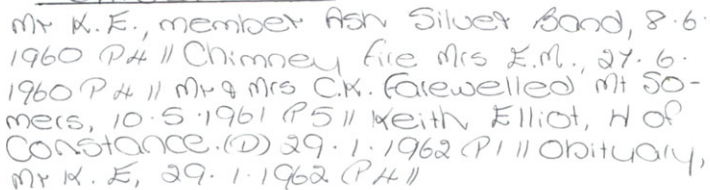 Mr K.E., member Ash Silver Band, 8.6.
1960 P4 // Chimney fire Mrs E.M., 27.6.
1960 P4 // Mr & Mrs C.K. farewelled Mt So-
mers, 10.5.1961 P5 // Keith Elliot, H of
Constance. (D) 29.1.1962 P1 // Obituary,
Mr K.E, 29.1.1962 P4 //